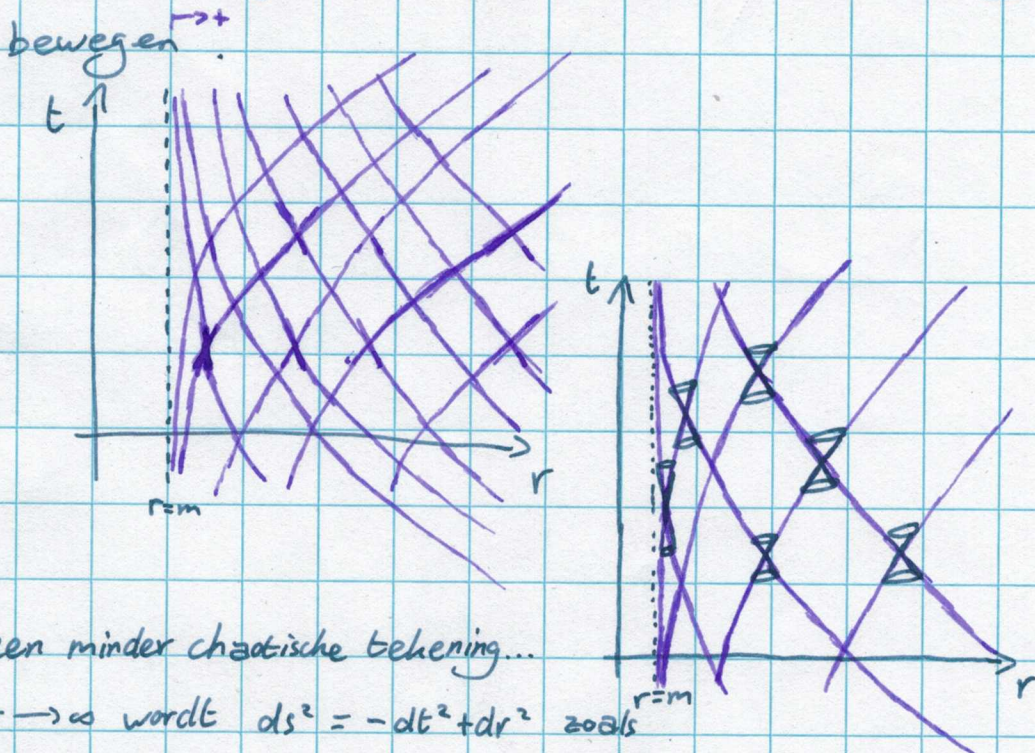 → +
bewegen
t
r
r=m
t
r
r=m
een minder chaotische tekening...
→∞ wordt ds² = -dt² + dr² zoals